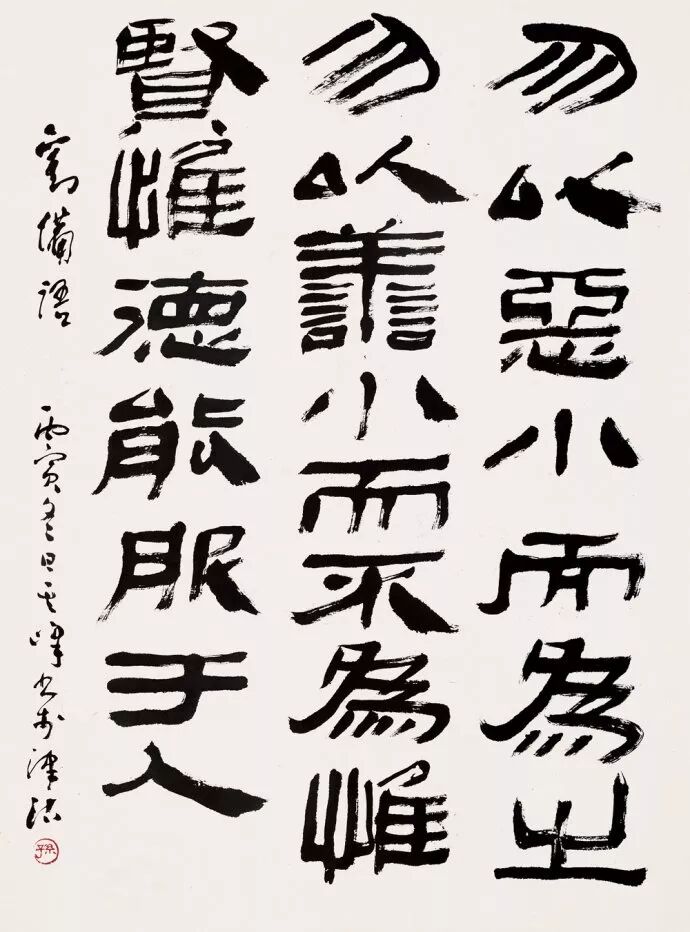 勿以惡小而為之
勿以譱小而不為惟
賢惟德能服于人
劉備語 丙寅冬日其峰书於津沽
孫